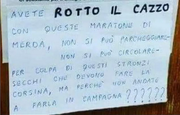 AVETE ROTTO IL CAZZO
CON QUESTE MARATONE DI
MERDA, NON SI PUÒ PARCHEGGIARE
NON SI PUÒ CIRCOLARE-
PER COLPA DI QUESTI STRONZI
SECCHI CHE DEVONO FARE LA
CORSINA, MA PERCHÉ NON ANDATE
A FARLA IN CAMPAGNA ??????